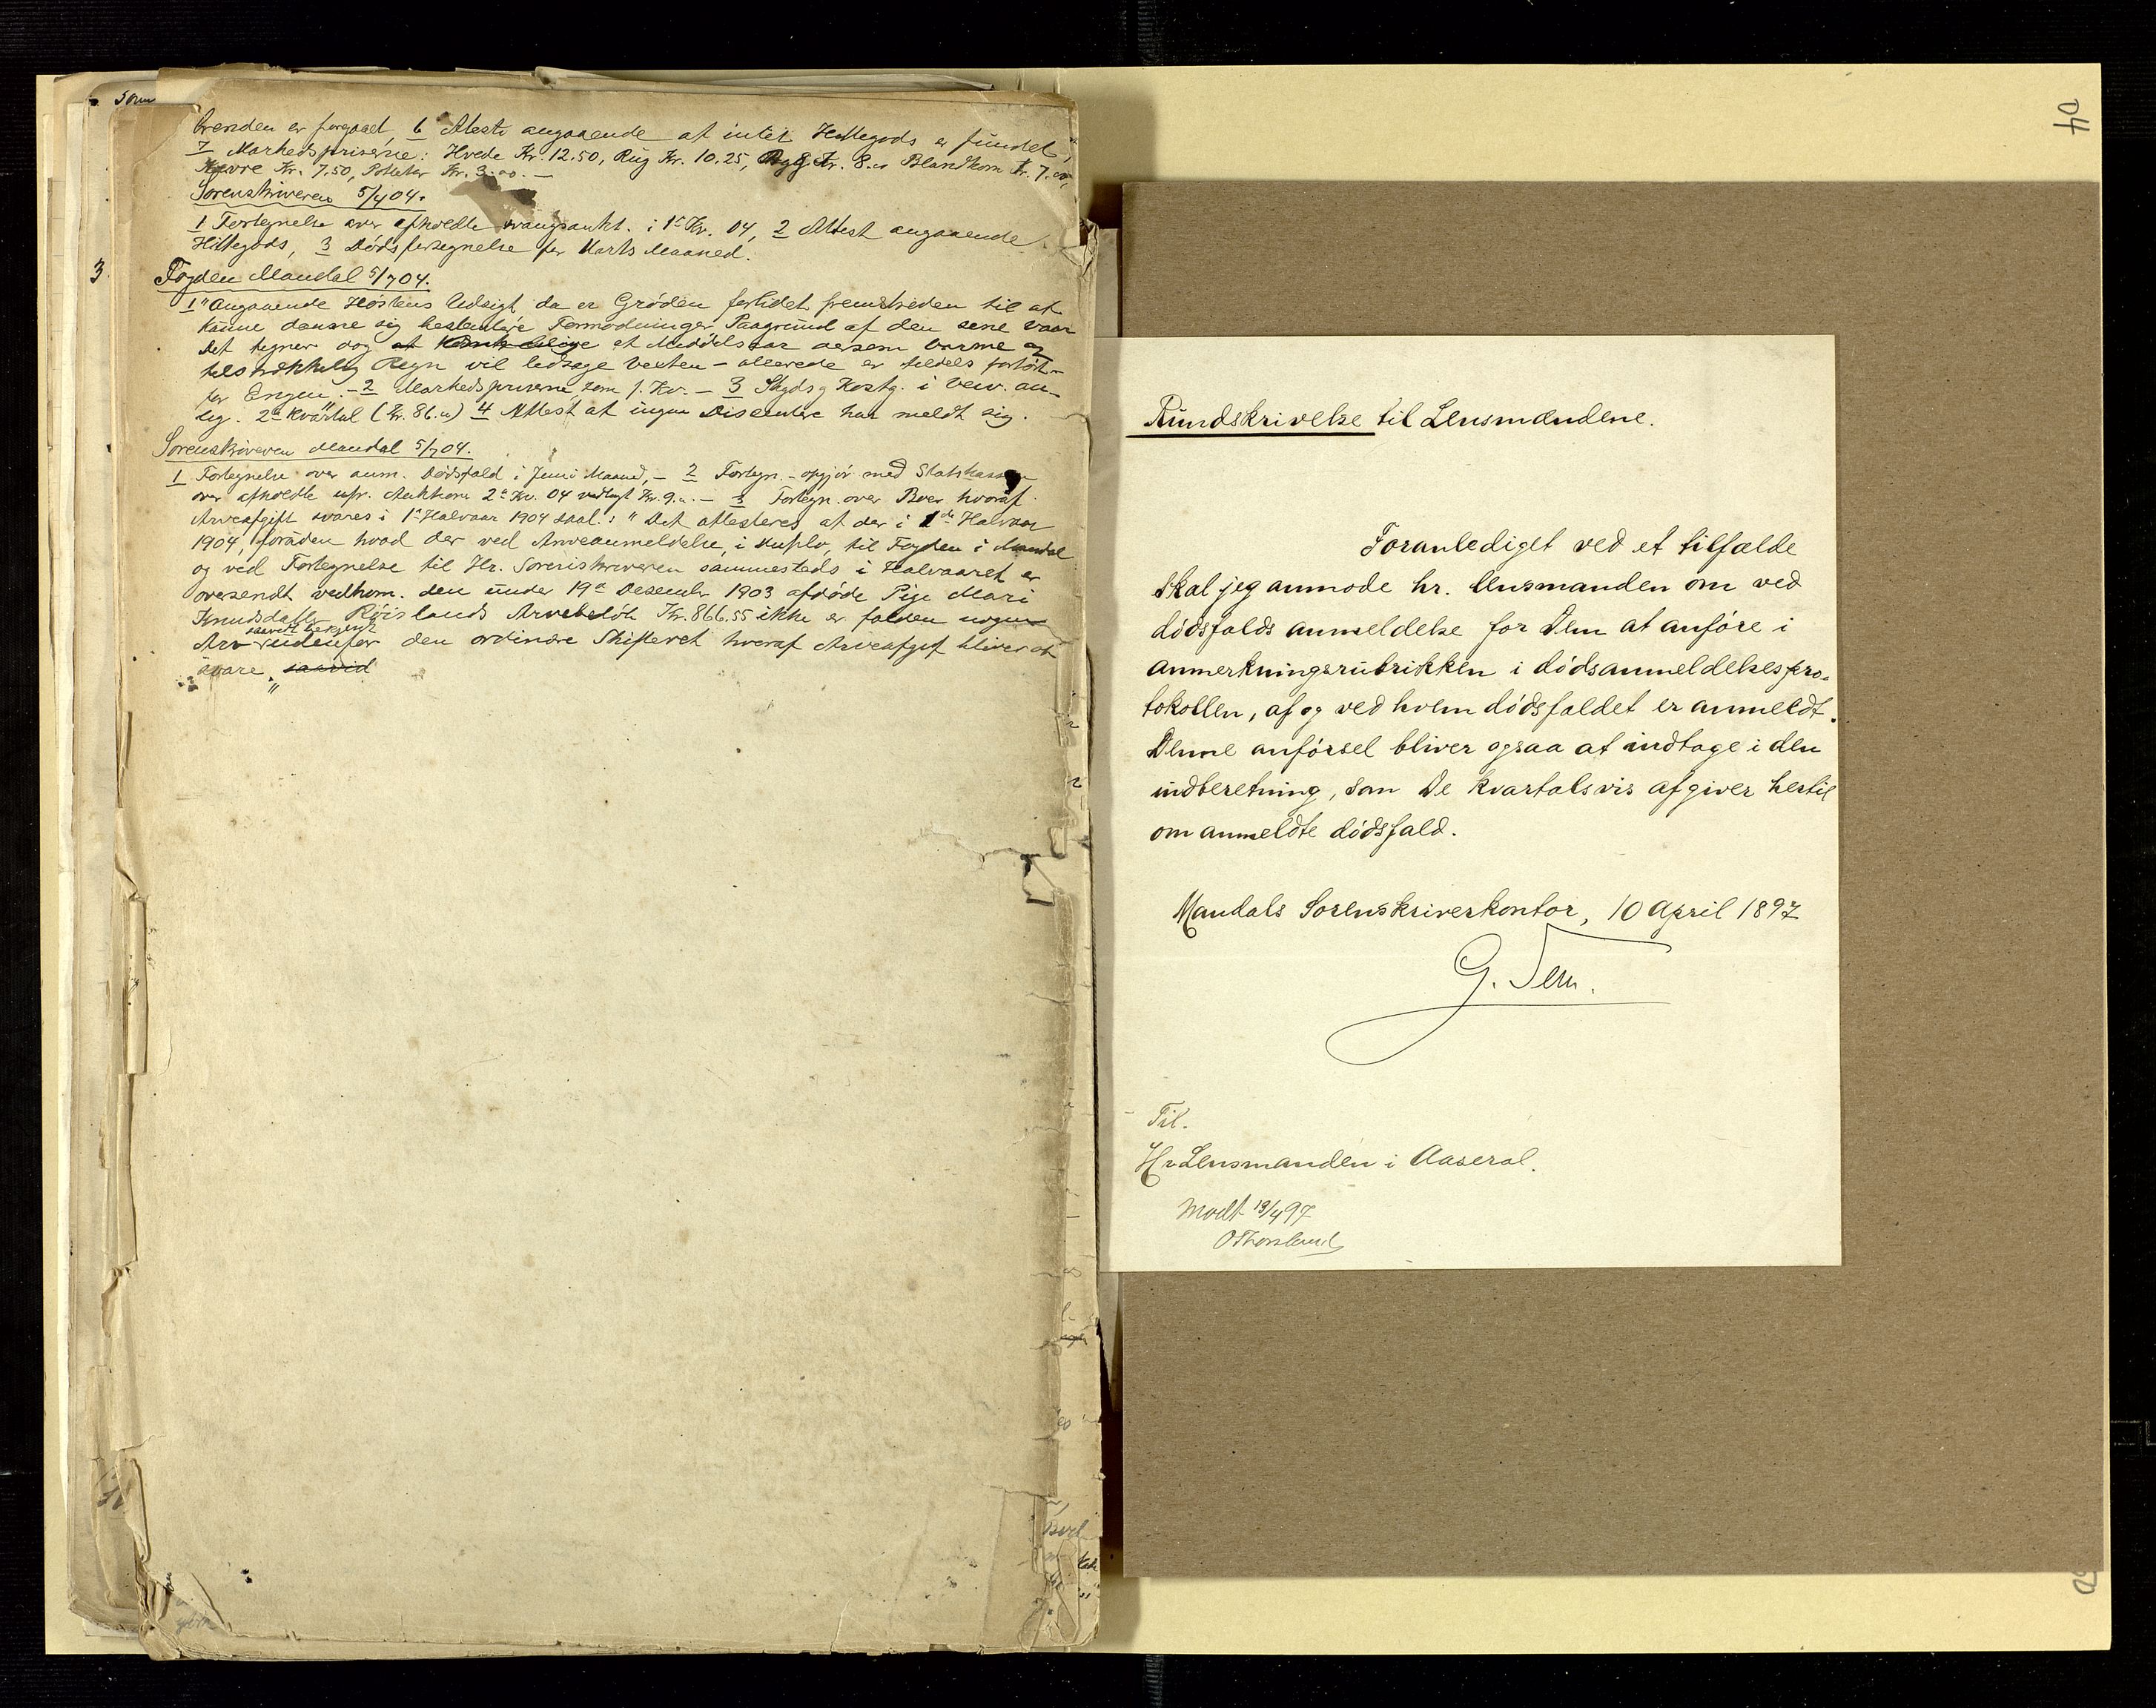 Som
brenden er foregaaet, 6 Attest angaaende at intet Hittegods er fundet,
7 Markedspriserne: Hvede Kr. 12.50, Rug Kr. 10.25, Byg Kr. 8.00 Blandkorn Kr. 7.00,
Havre Kr. 7.50, Poteter Kr. 3.00. —
Sorenskriveren 5/4 04.
1 Fortegnelse over afholdte tvangsaukt. i 1ste Kv. 04, 2 Attest angaaende
Hittegods, 3 Dødsfortegnelse for Marts Maaned.
3
Fogden Mandal 5/7 04.
1 "Angaaende Høstens Udsigt da er Grøden forlidet fremskreden til at
kunne danne sig bestemte Formodninger, Paagrund af den sene Vaar
Det tegner dog at et Middelsaar dersom Varme og
tilstrækkelig Regn vil ledsage Vexten - allerede er tildels fortørt
for Engen". - 2 Markedspriserne som f. Kv. - 3 Skyds og Kostg. i Veiv. an-
leg. 2det Kvartal (Kr. 86.00) 4 Attest at ingen Dissentere har meldt sig.
Sorenskriveren Mandal 5/7 04.
1 Fortegnelse over anm. Dødsfald i Juni Maaned, - 2 Fortegn. - opgjør med Statskassen
over afholdte Auktion 2det Kv. 04 vedlagt Kr. 9. - 3 Fortegn. over Boer hvoraf
Arveafgift svares i 1ste Halvaar 1904 saal.: "Det attesteres at der i 1ste Halvaar
1904, foruden hvad der ved Arveanmeldelse, i duplo, til Fogden i Mandal
og ved Fortegnelse til Hr. Sorenskriveren sammesteds i Halvaaret er
oversendt vedkom. den under 19de Desember 1903 afdøde Pige Mari
Knudsdatter Røislands Arvebeløb Kr. 866.55 ikke er falden nogen
saavidt bekjendt
Arv udenfor den ordinære Skifteret hvoraf Arveafgift bliver at
svare." saavid
Rundskrivelse til Lensmændene.
Foranlediget ved et tilfælde
skal jeg anmode hr. lensmanden om ved
dødsfalds anmeldelse for Dem at anføre i
anmerkningsrubrikken i dødsanmeldelsespro-
tokollen, af og ved hvem dødsfaldet er anmeldt.
Denne anførsel bliver ogsaa at indtage i den
indberetning, som De kvartalsvis afgiver hertil
om anmeldte dødsfald.
Mandals Sorenskriverkontor, 10 April 1897
Til.
Hr Lensmanden i Aaseral.
Modt 13/4 97
OThorsland